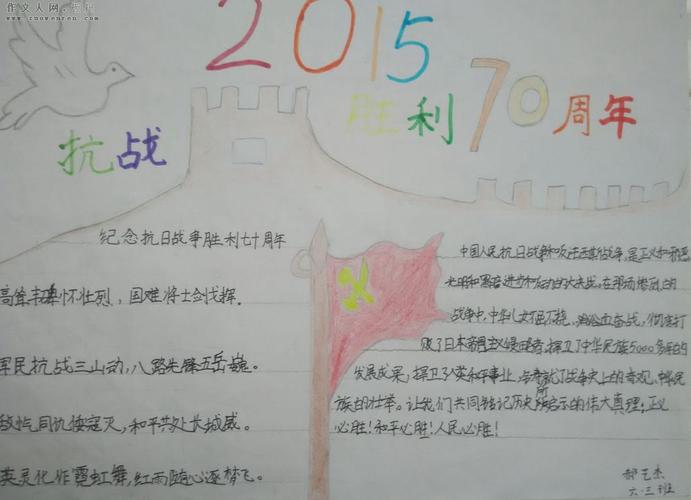 作文人网
www.zuowenren.com
2015
抗战胜利70周年
纪念抗日战争胜利七十周年
高峰丰碑怀壮烈，国难将士剑戈挥。
军民抗战三山动，八路先锋五岳巍。
敌忾同仇倭寇灭，和平共处长城威。
英灵化作霓虹舞，红雨随心逐梦飞。
中国人民抗日战争和反法西斯战争，是正义和邪恶
光明和黑暗进步和反动的大决战。在那场惨烈的
战争中，中华儿女不屈不挠、浴血奋战，彻底打
败了日本军国主义侵略者，捍卫了中华民族5000多年的
发展成果，捍卫了人类和平事业，战争史上的奇观、中华民
族的壮举。让我们共同铭记历史所启示的伟大真理：正义
必胜！和平必胜！人民必胜！
六.三班